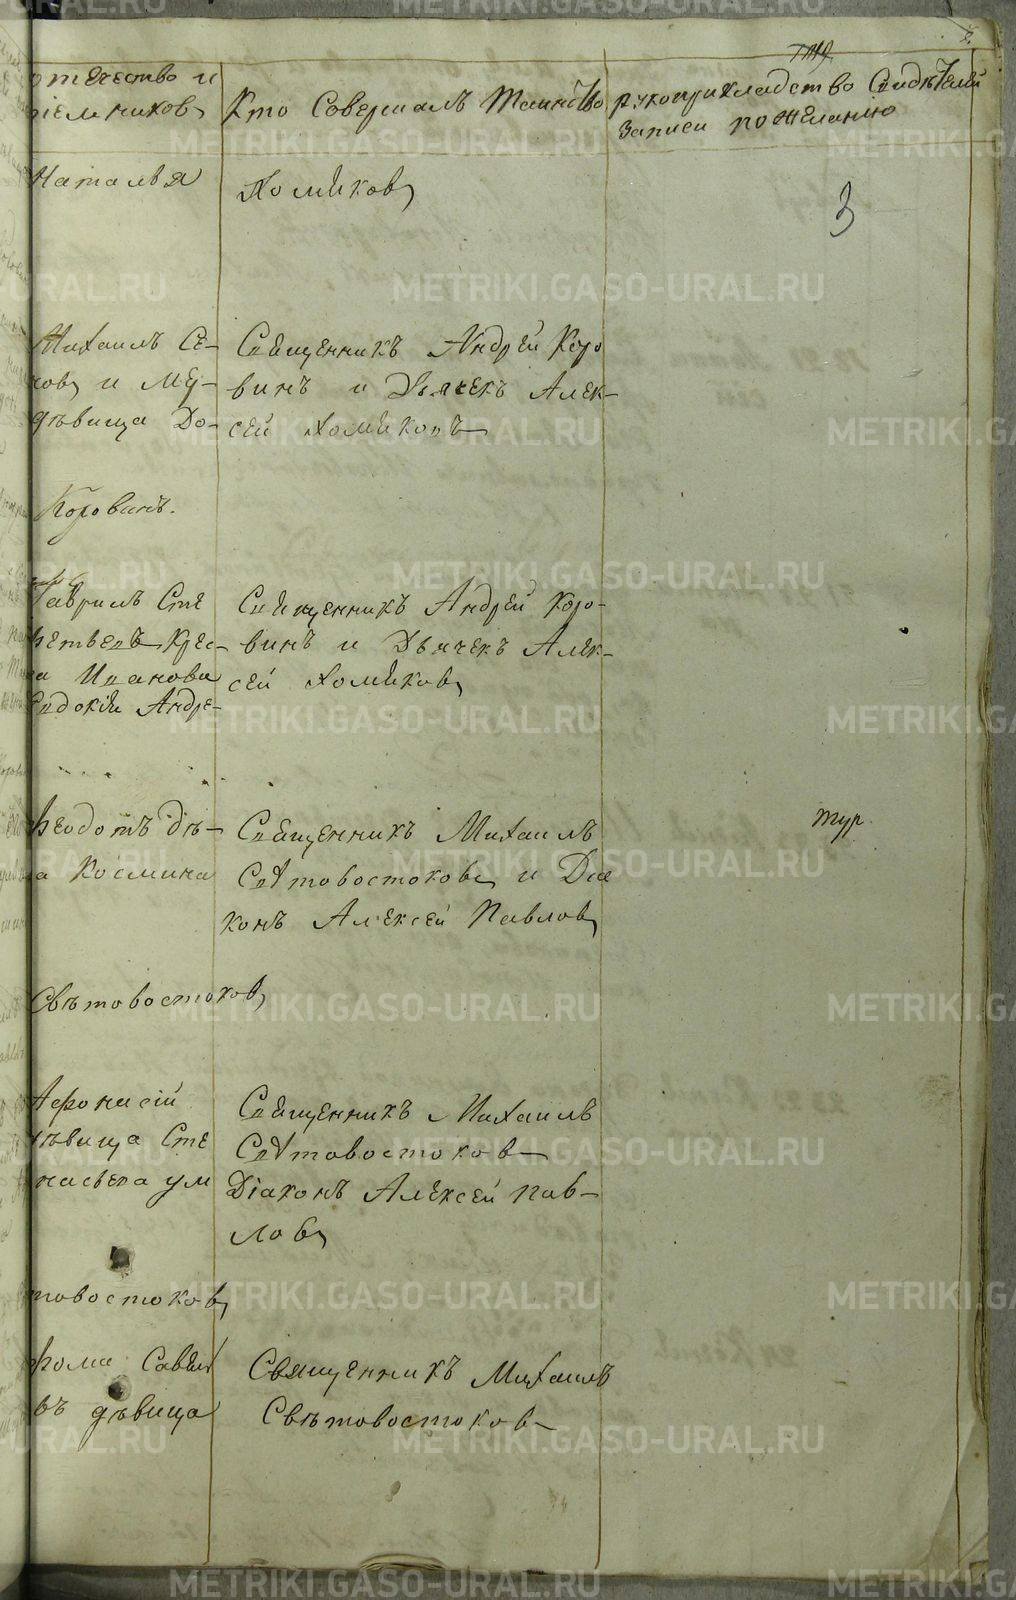 отчество и
Кто Совершалъ Таинство
рукоприкладство Свидѣтелей
Записи по желанію
Наталья
Хомяковъ
3
Михаилъ Се-
ковъ и Ме-
дѣвица До-
Священникъ Андрей Коро
винъ и Дьячекъ Алек-
сей Хомяковъ
Коровинъ.
Гаврилъ Сте
Крес-
Иванова
Евдокіи Андре-
Священникъ Андрей Коро-
винъ и Дьячекъ Алек-
сей Хомяковъ
Ѳеодотъ Дѣ-
а Космина
Священникъ Михаилъ
Свѣтовостоковъ и Діа
конъ Алексей Павловъ
Свѣтовостоковъ
Афонасій
дѣвица Сте
Священникъ Михаилъ
Свѣтовостоковъ
Діаконъ Алексей Пав-
ловъ
товостоковъ
Ѳома Савел
въ дѣвица
Священникъ Михаилъ
Свѣтовостоковъ
METRIKI.GASO-URAL.RU